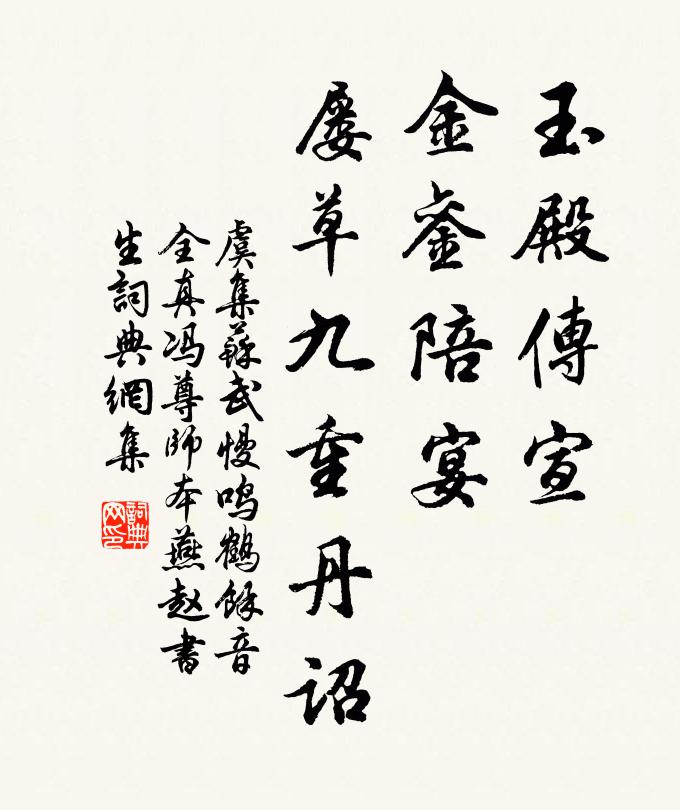 玉殿傳宣
金銮陪宴
屡草九重丹詔
虞集蘇武慢鳴鶴餘音
全真冯尊師本燕赵書
生詞典網集
詞典网印